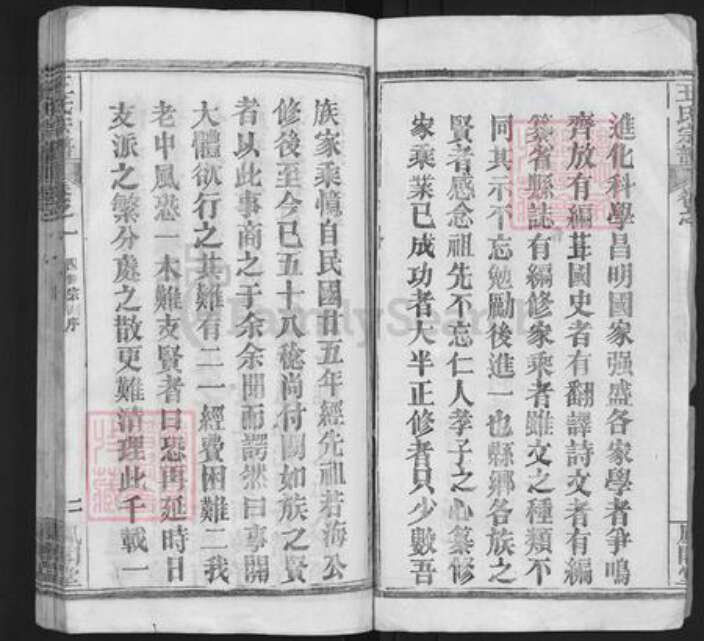 進化科學昌明國家强盛各家學者爭鳴
齊放有編茸國史者有翻譯詩文者有編
篆省縣誌有編修家乘者雖文之種類不
同其示不忘勉勵後進一也縣鄉各族之
賢者感念祖先不忘仁人孝子之心纂修
家乘業已成功者大半正修者只少數吾
族家乘憶自民國廿五年經先祖若海公
修後至今已五十八稔尚付闕如族之賢
者以此事商之于余余聞而諤然曰事關
大體欲行之其難有二一經費困難二我
老中風恐一木難支賢者曰恐再延時日
支派之繁分處之散更難清理此千載一
王氏宗譜
卷之一
二
FamilySearch